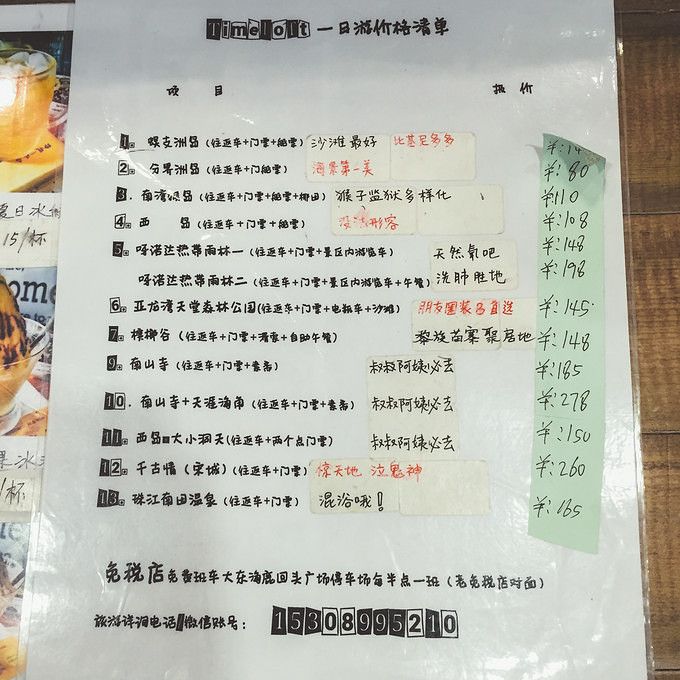 Timeloft 一日游价格清单
项 目 报 价
1. 蜈支洲岛 (往返车+门票+船票) 沙滩最好 比基尼多多 ¥:14
2. 分界洲岛 (往返车+门船票) 海景第一美 ¥:80
3. 南湾猴岛 (往返车+门票+船票+缆田) 猴子监狱多样化 ¥110
4. 西 岛 (往返车+门票+船票) 没法形容 ¥:108
5. 呀诺达热带雨林一 (往返车+门票+景区内游览车) 天然氧吧 ¥:148
呀诺达热带雨林二 (往返车+门票+景区内游览车+午餐) 洗肺胜地 ¥:198
6. 亚龙湾天堂森林公园(往返车+门票+电瓶车+沙滩) 朋友圈装B首选 ¥:145
7. 槟榔谷 (往返车+门票+清票+自助午餐) 黎族苗寨聚居地 ¥:148
9. 南山寺 (往返车+门票+素斋) 叔叔阿姨必去 ¥:185
10. 南山寺+天涯海角 (往返车+门票+素斋) 叔叔阿姨必去 ¥:278
11. 西岛■大小洞天(往返车+两个点门票) 叔叔阿姨必去 ¥:150
12. 千古情 (宋城) (往返车+门票) 惊天地 泣鬼神 ¥:260
13. 珠江南田温泉 (往返车+门票) 混浴哦! ¥:165
免税店 免费班车大东海鹿回头广场停车场每半点一班 (老免税店对面)
旅游详询电话/微信账号: 15308995210
夏日冰
15/杯
果冰
/杯